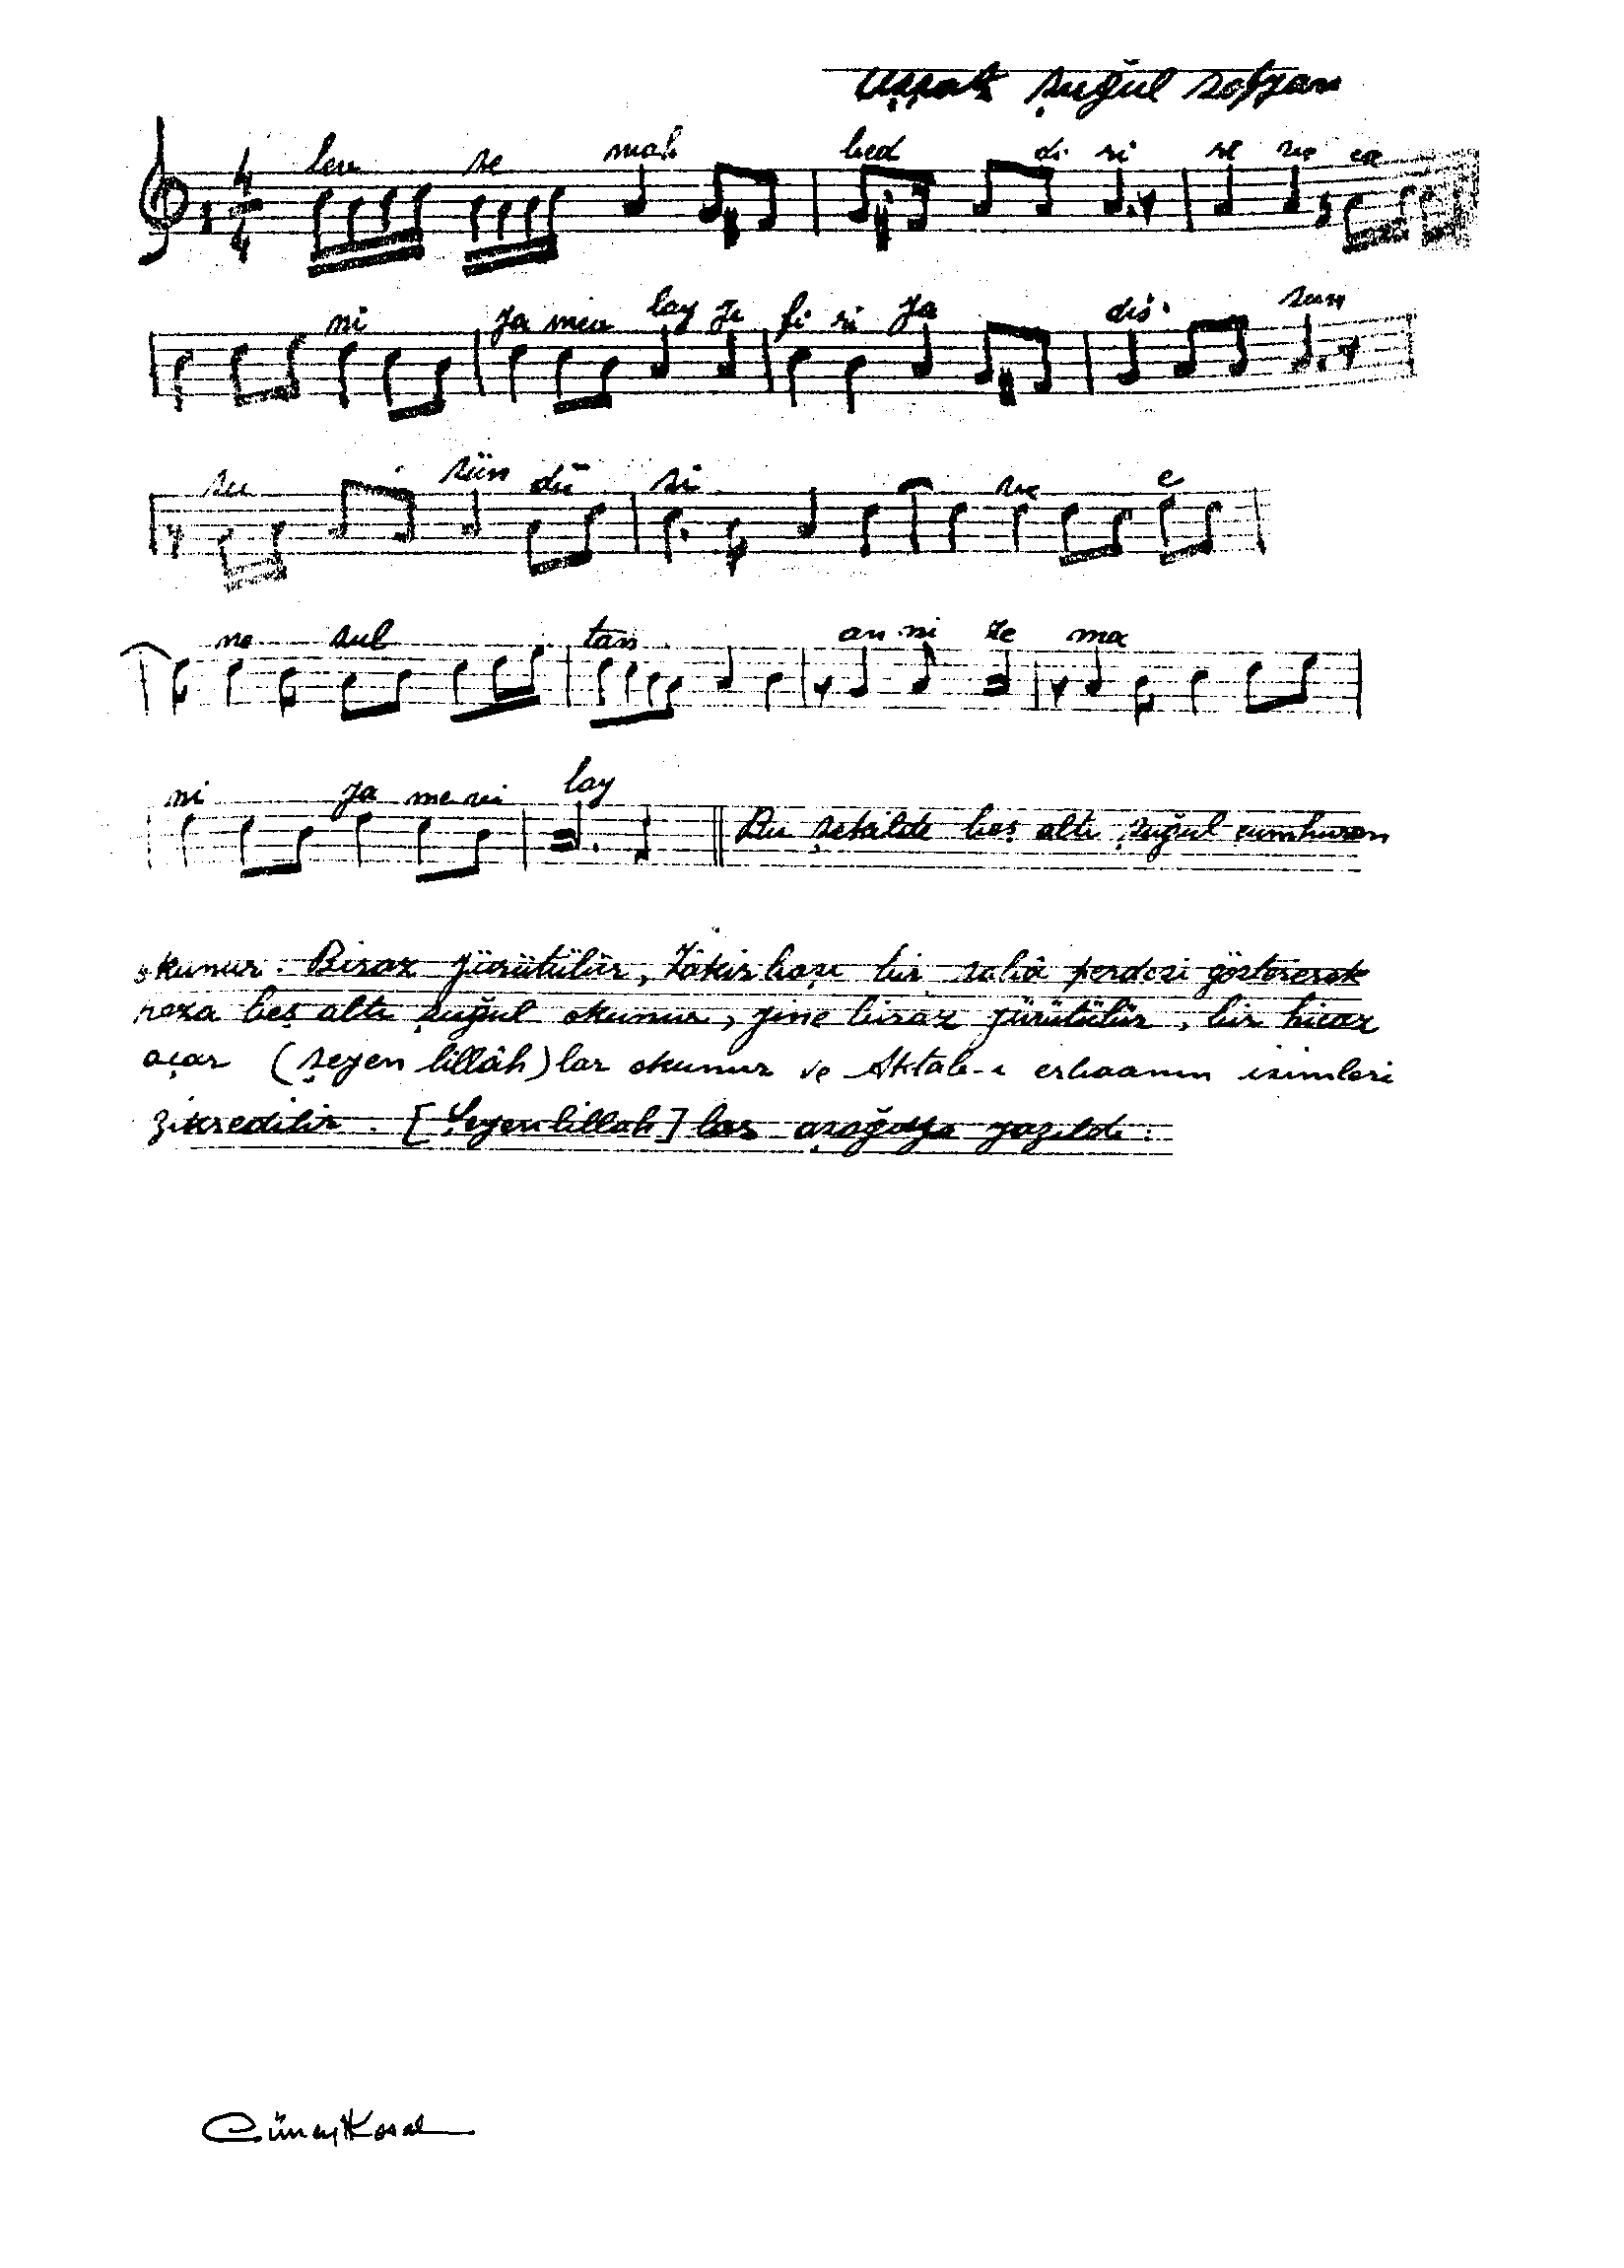 Uşşak şuğul sofyan
4
4
lev se mah bed di si se ve ca
ni ya mev lay ye fi ri ya dıs sun
su sün dü si ve e
ne sul tan an ni ze ma
ni ya me vi lay
Bu şekilde beş altı şuğul cumhuren
okunur. Biraz yürütülür, Zâkirbaşı bir sabâ perdesi göstererek
beş altı şuğul okunur, yine biraz yürütülür, bir hicaz
açar (şeyen lillâh)lar okunur ve Aktab-ı erbaanın isimleri
zikredilir. [Şeyen lillah]lar aşağıya yazıldı:
Cüneyt Kosal